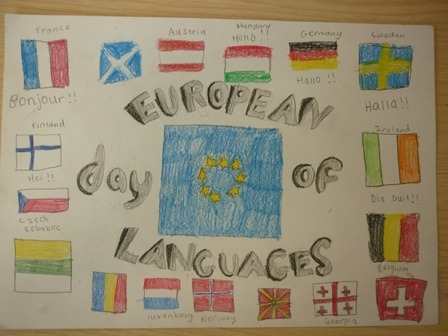 France
Austria
Hungary
Hello !!
Germany
Sweden
Bonjour!!
Hallo !!
Halla!!
EUROPEAN
Finland
Ireland
Hei!!
day
OF
Dia Duit!!
Czech
Republic
LANGUAGES
Belgium
luxenboug
Norway
Georgia